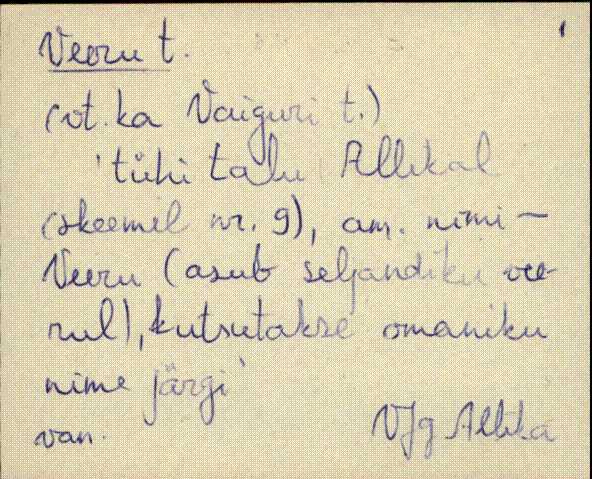 Veeru t.
(vt. ka Vaiguri t.)
'tühi talu Allikal
(skeemil nr. 9), am. nimi –
Veeru (asub seljandiku vee-
rul), kutsutakse omaniku
nime järgi'
van. VJg Allika